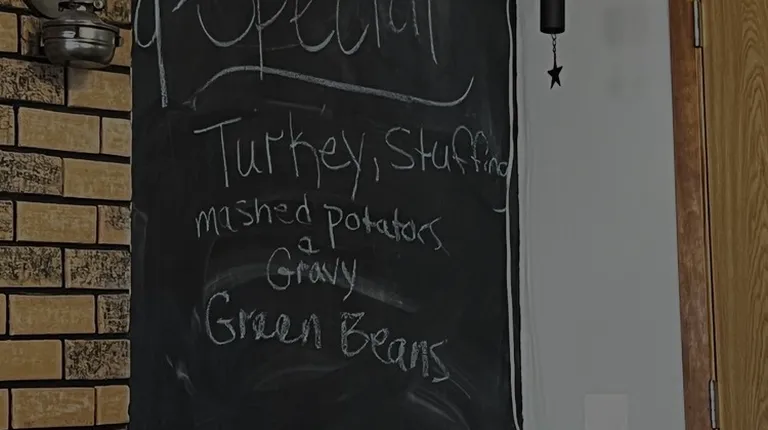 Special
Turkey, Stuffing
mashed potatoes
&
Gravy
Green Beans